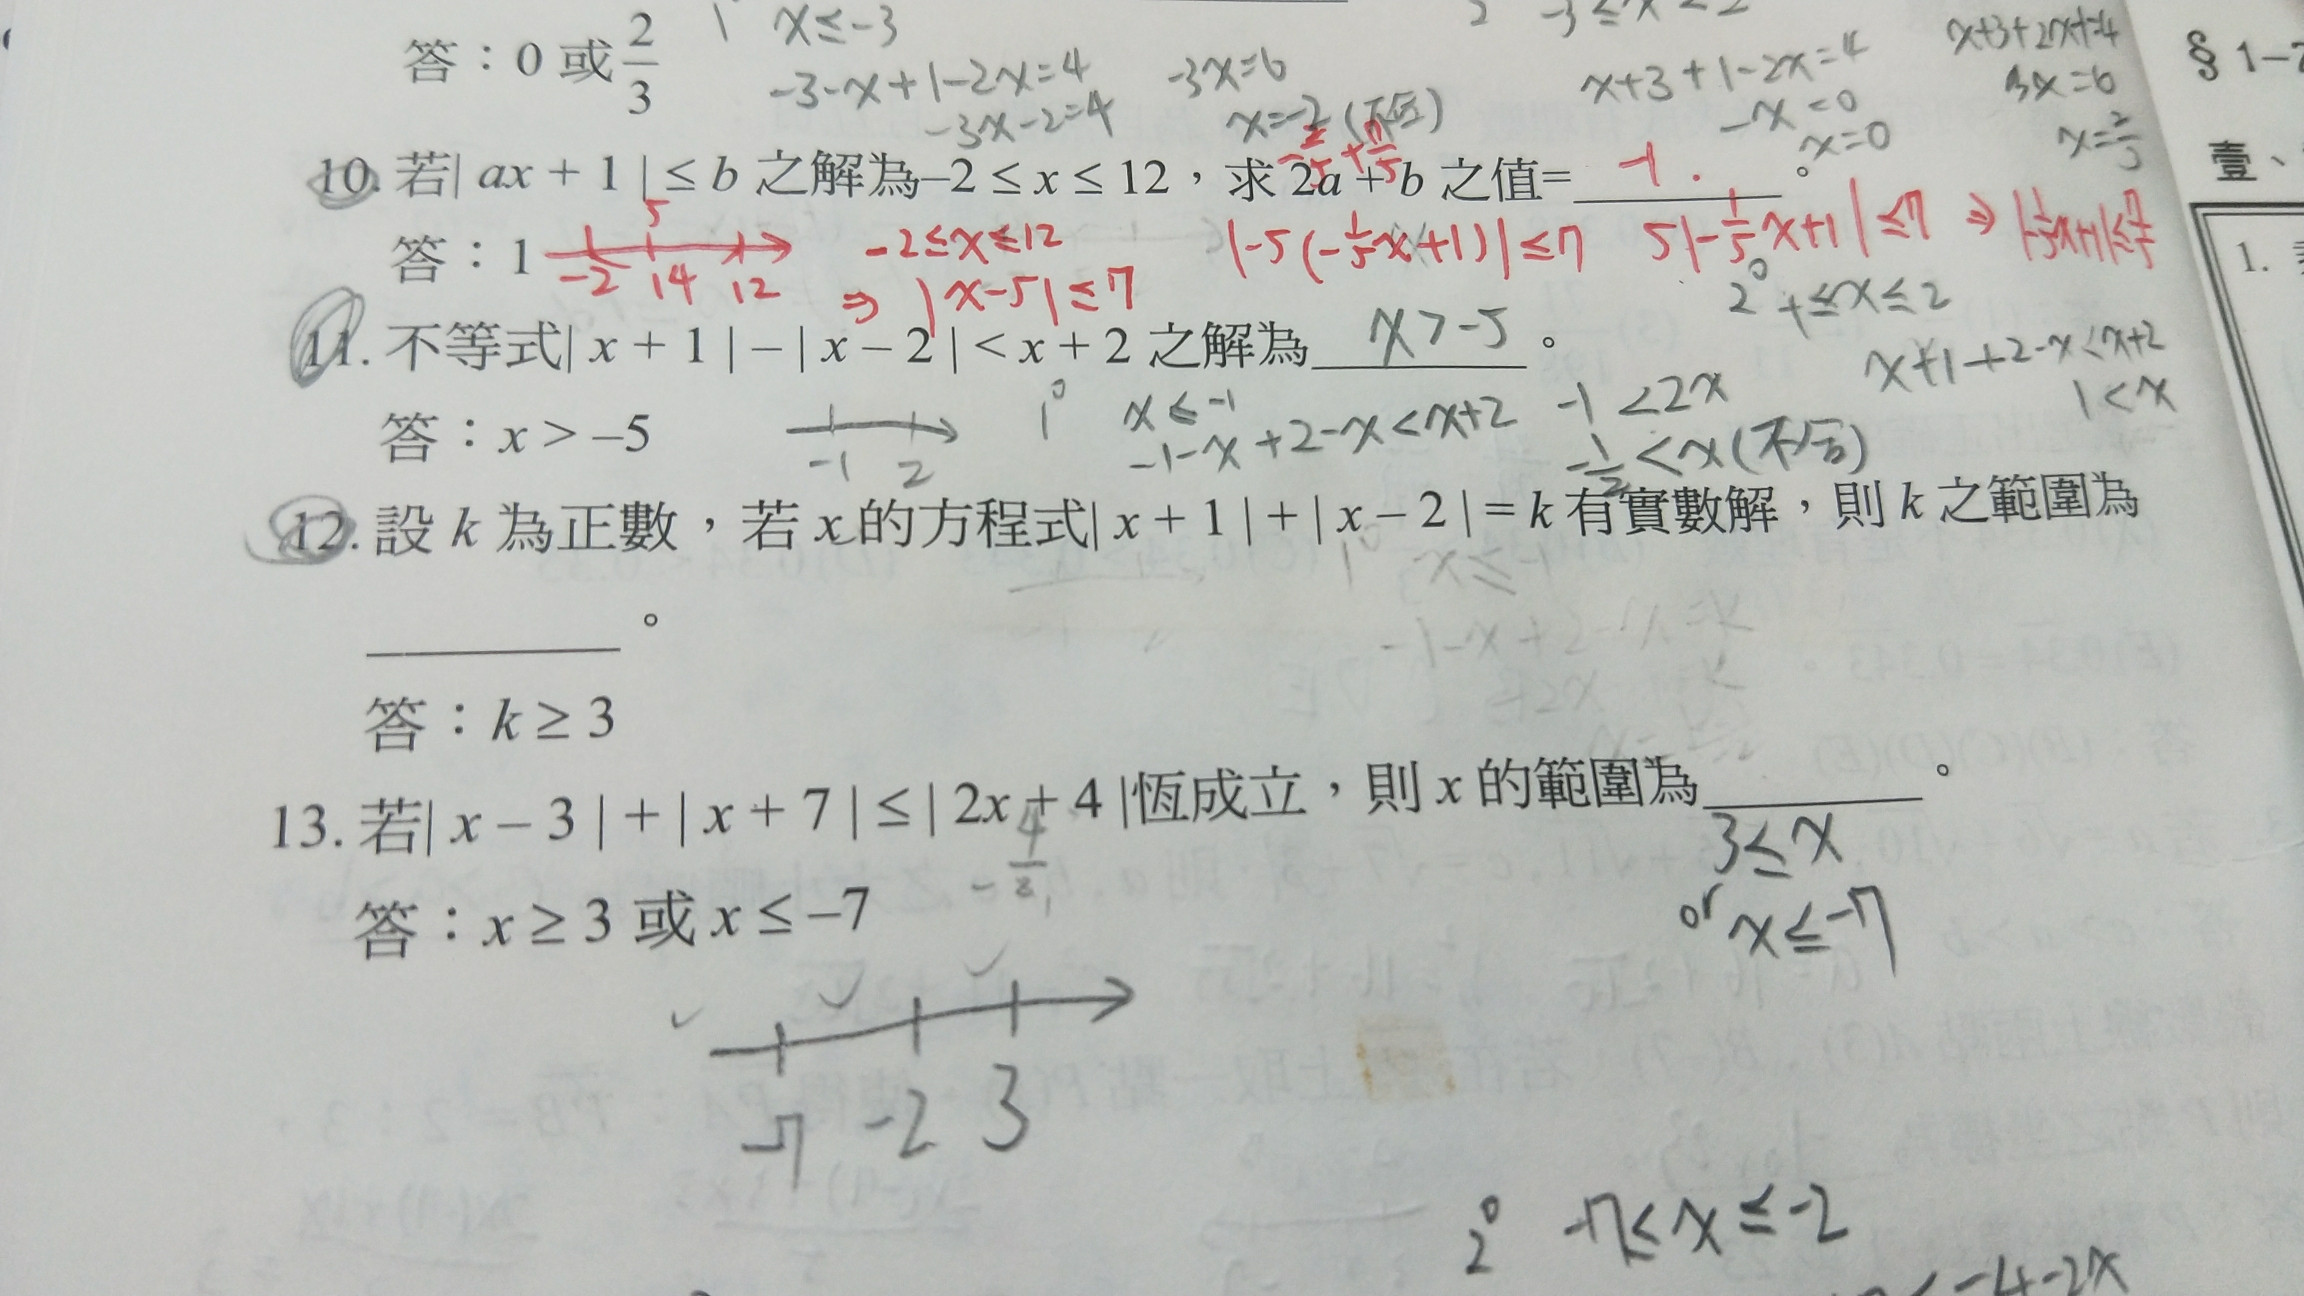 答：0 或 2/3
1 x≤-3
-3-x+1-2x=4
-3x-2=4
-3x=6
x=-2 (不合)
x+3+1-2x=4
-x=0
x=0
3x=6
x=2/3
§ 1-7
壹、
10. 若| ax + 1 | ≤ b 之解為–2 ≤ x ≤ 12，求 2a + b 之值= -1 。
-2/5 + 7/5
答：1
5
-2 14 12
-2≤x≤12
⇒ |x-5|≤7
|-5(-1/5x+1)|≤7
5|-1/5x+1|≤7 ⇒ |-1/5x+1|≤7/5
1.
11. 不等式| x + 1 | – | x – 2 | < x + 2 之解為 x>-5 。
答：x > –5
-1 2
1° x≤-1
-1-x+2-x<x+2
-1<2x
-1/2<x(不合)
x+1+2-x<x+2
1<x
12. 設 k 為正數，若 x 的方程式| x + 1 | + | x – 2 | = k 有實數解，則 k 之範圍為
。
1° x≤-1
答：k ≥ 3
13. 若| x – 3 | + | x + 7 | ≤ | 2x + 4 |恆成立，則 x 的範圍為 。
3≤x
or x≤-7
答：x ≥ 3 或 x ≤ –7
-7 -2 3
2° -7≤x≤-2
-4-2x